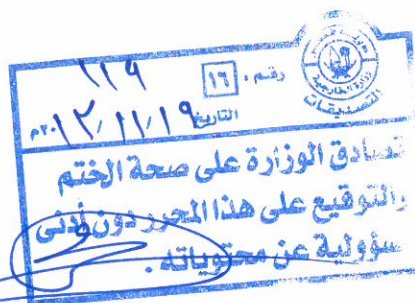 دولة قطر
وزارة الخارجية
التصديقات
رقم . ١٦ ١١٩
التاريخ ١٩ / ١١ / ٢٠١٢م
تصادق الوزارة على صحة الختم
والتوقيع على هذا المحرر دون أدنى
مسؤولية عن محتوياته .